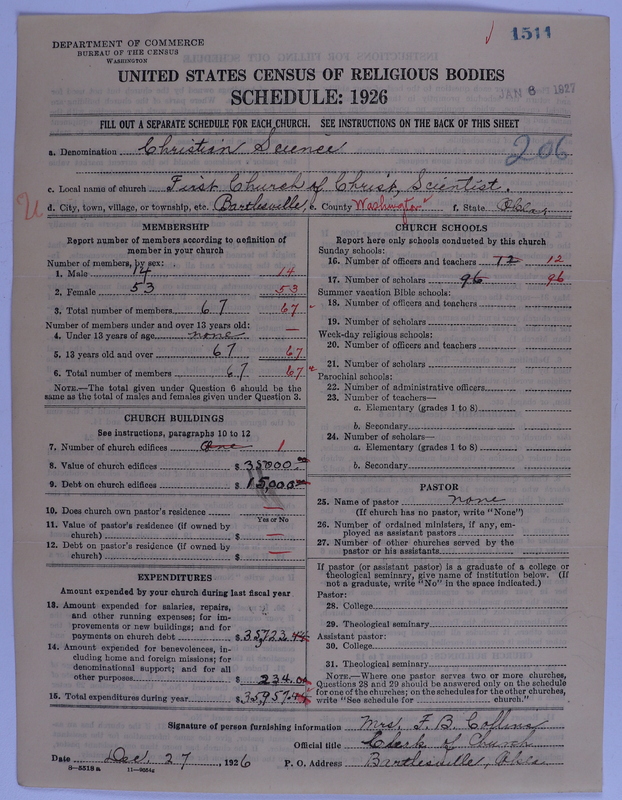 1511
DEPARTMENT OF COMMERCE
BUREAU OF THE CENSUS
WASHINGTON
UNITED STATES CENSUS OF RELIGIOUS BODIES
SCHEDULE: 1926
JAN 8 1927
FILL OUT A SEPARATE SCHEDULE FOR EACH CHURCH. SEE INSTRUCTIONS ON THE BACK OF THIS SHEET
a. Denomination Christian Science
206
c. Local name of church First Church of Christ, Scientist.
d. City, town, village, or township, etc. Bartlesville, e. County Washington f. State Okla,
MEMBERSHIP
Report number of members according to definition of
member in your church
Number of members, by sex:
1. Male 14 14
2. Female 53 53
3. Total number of members 67 67
Number of members under and over 13 years old:
4. Under 13 years of age none —
5. 13 years old and over 67 67
6. Total number of members 67 67
NOTE.—The total given under Question 6 should be the
same as the total of males and females given under Question 3.
CHURCH BUILDINGS
See instructions, paragraphs 10 to 12
7. Number of church edifices One 1
8. Value of church edifices $ 35000.00
9. Debt on church edifices $ 15,000
10. Does church own pastor's residence —
Yes or No
11. Value of pastor's residence (if owned by
church) $ —
12. Debt on pastor's residence (if owned by
church) $ —
EXPENDITURES
Amount expended by your church during last fiscal year
13. Amount expended for salaries, repairs,
and other running expenses; for im-
provements or new buildings; and for
payments on church debt $ 35723.44
14. Amount expended for benevolences, in-
cluding home and foreign missions; for
denominational support; and for all
other purposes $ 234.00
15. Total expenditures during year $ 35957.44
CHURCH SCHOOLS
Report here only schools conducted by this church
Sunday schools:
16. Number of officers and teachers 12 12
17. Number of scholars 96 96
Summer vacation Bible schools:
18. Number of officers and teachers
19. Number of scholars
Week-day religious schools:
20. Number of officers and teachers
21. Number of scholars
Parochial schools:
22. Number of administrative officers
23. Number of teachers—
a. Elementary (grades 1 to 8)
b. Secondary
24. Number of scholars—
a. Elementary (grades 1 to 8)
b. Secondary
PASTOR
25. Name of pastor none
(If church has no pastor, write "None")
26. Number of ordained ministers, if any, em-
ployed as assistant pastors
27. Number of other churches served by the
pastor or his assistants
If pastor (or assistant pastor) is a graduate of a college or
theological seminary, give name of institution below. (If
not a graduate, write "No" in the space indicated.)
Pastor:
28. College
29. Theological seminary
Assistant pastor:
30. College
31. Theological seminary
NOTE.—Where one pastor serves two or more churches,
Questions 28 and 29 should be answered only on the schedule
for one of the churches; on the schedules for the other churches,
write "See schedule for church."
Signature of person furnishing information Mrs. F. B.
Official title Clerk of Church
Date Dec. 27, 1926 P. O. Address Bartlesville, Okla.
8—5518a 11—9054